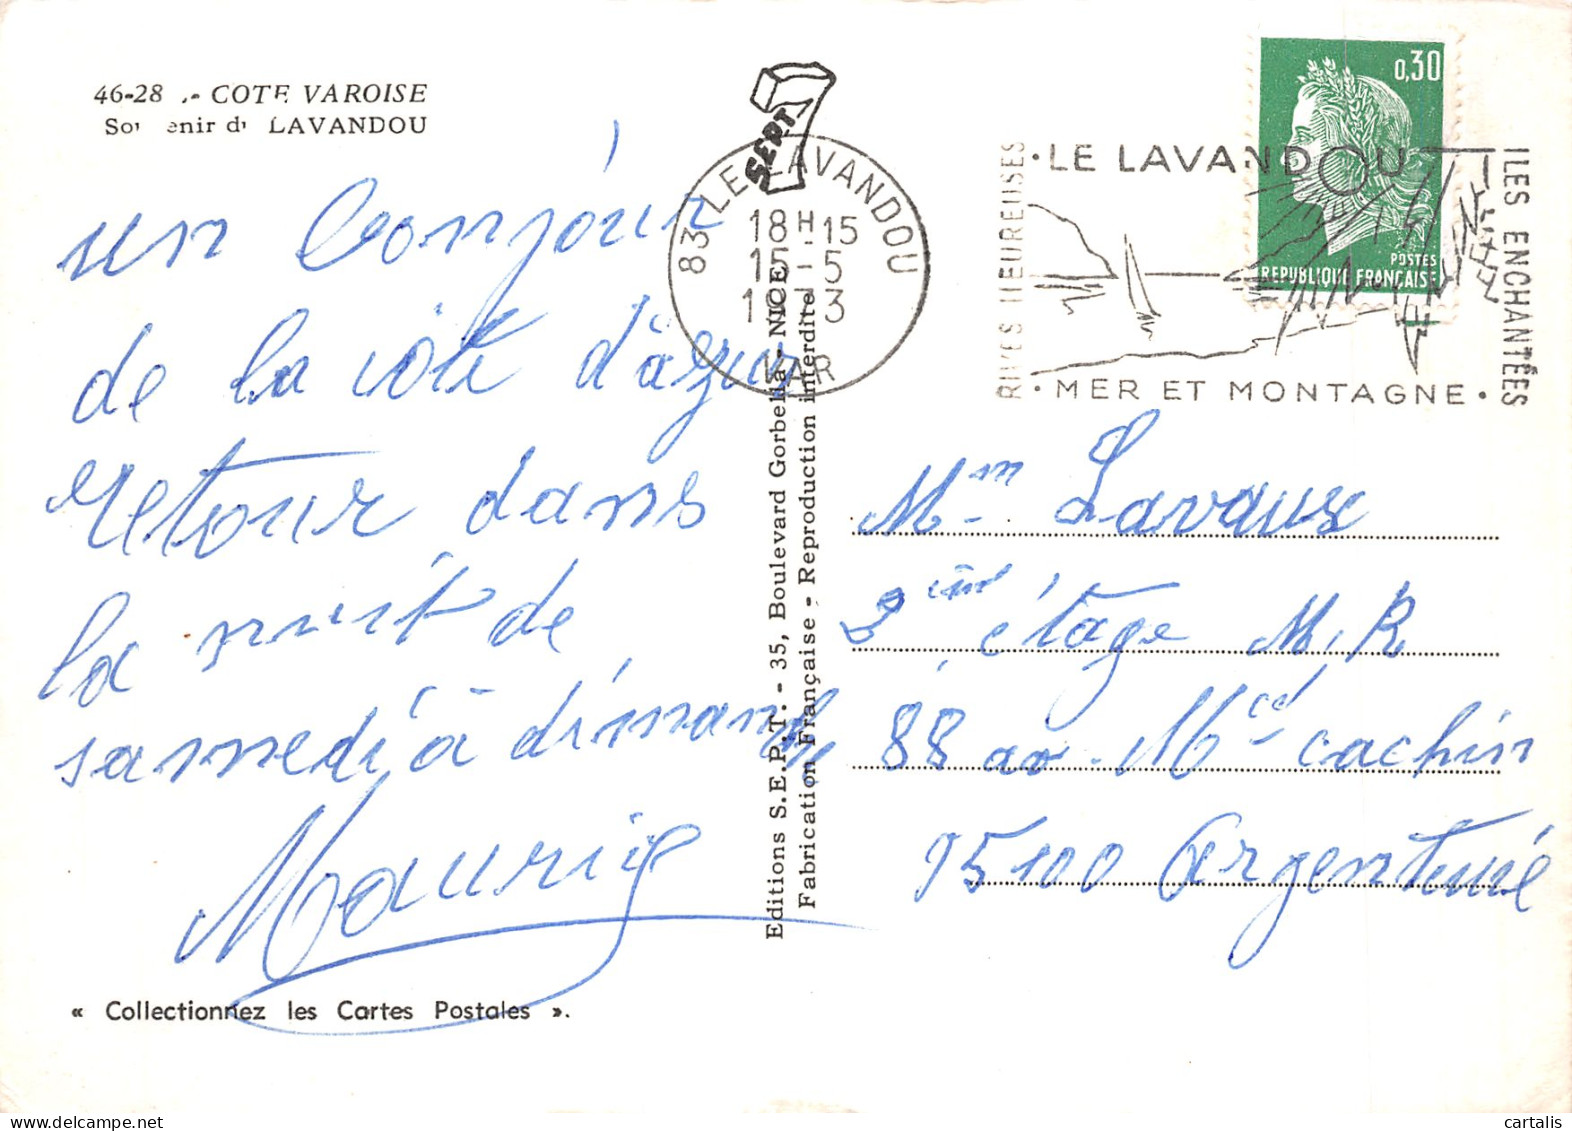 46-28 .- COTE VAROISE
Souvenir du LAVANDOU
un bonjour
de la côte d'azur
retour dans
la nuit de
samedi à dimanche
Maurice
« Collectionnez les Cartes Postales ».
SEPT
83 LE LAVANDOU
18H-15
15-5
VAR
Editions S.E.P.T. - 35, Boulevard Gorbella - NICE
Fabrication Française - Reproduction interdite
RIVES HEUREUSES
· LE LAVANDOU ·
· MER ET MONTAGNE ·
ILES ENCHANTÉES
0,30
POSTES
REPUBLIQUE FRANÇAISE
Mme Lavaux
2ème étage M.R
88 av. Mcel cachin
95100 Argenteuil
cartalis